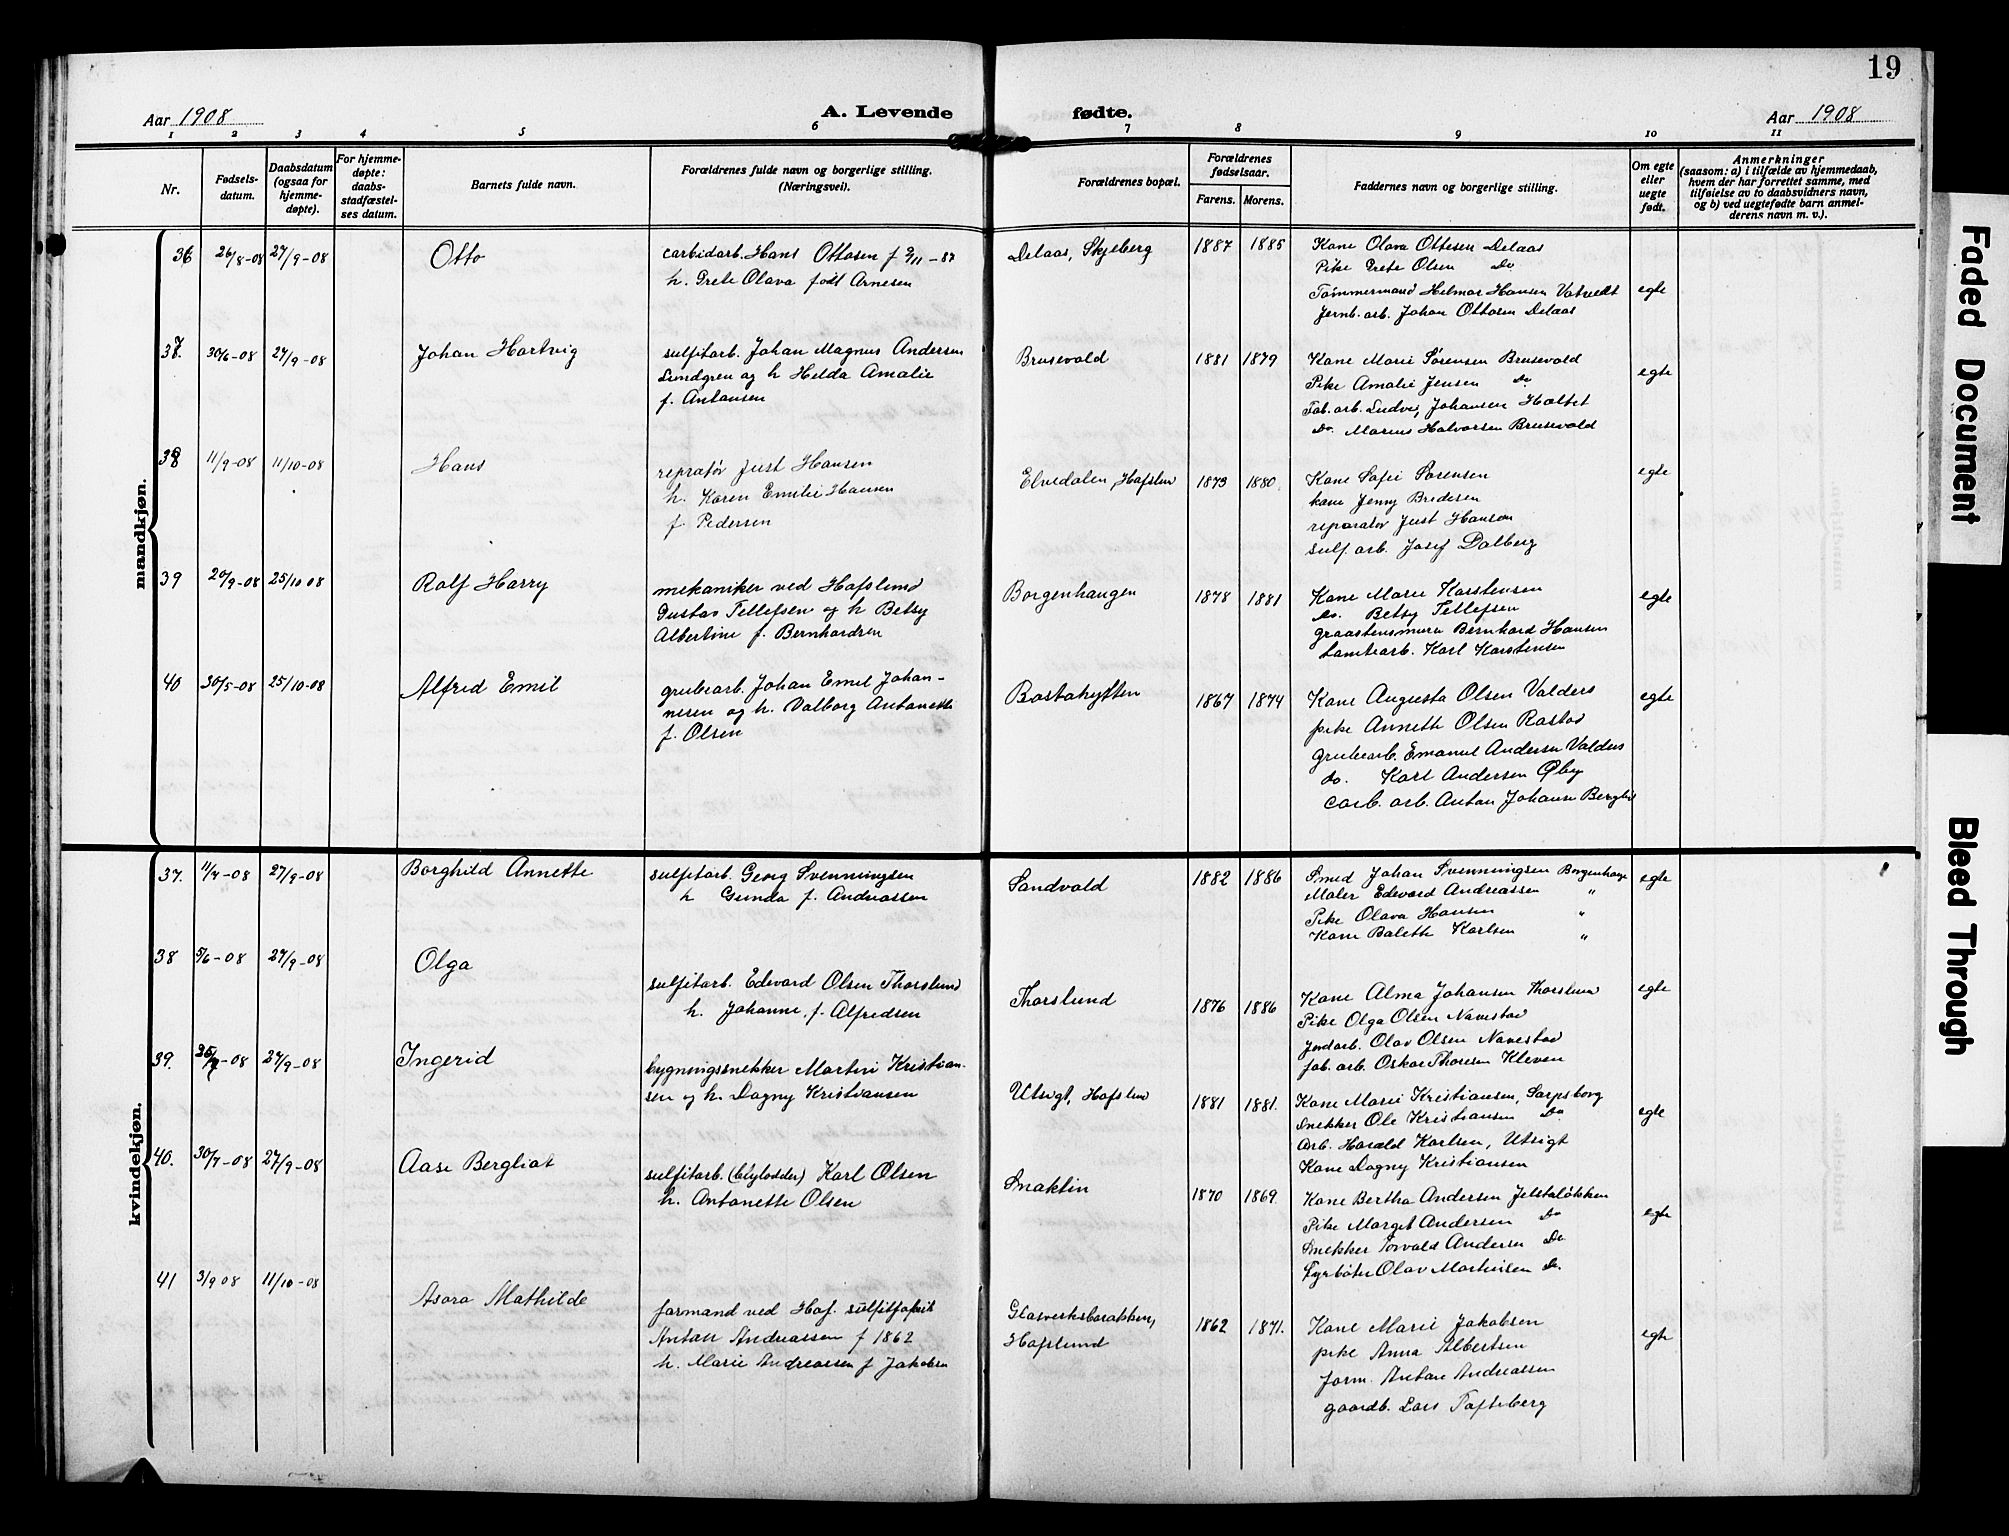 19
Aar 1908
A. Levende fødte.
Aar 1908
1 2 3 4 5 6 7 8 9 10 11
Nr.
Fødsels-
datum.
Daabsdatum
(ogsaa for
hjemme-
døpte).
For hjemme-
døpte:
daabs-
stadfæstel-
ses datum.
Barnets fulde navn.
Forældrenes fulde navn og borgerlige stilling.
(Næringsvei).
Forældrenes bopæl.
Forældrenes
fødselsaar.
Farens. Morens.
Faddernes navn og borgerlige stilling.
Om egte
eller
uegte
født.
Anmerkninger
(saasom: a) i tilfælde av hjemmedaab,
hvem der har forrettet samme, med
tilføielse av to daabsvidners navn,
og b) ved uegtefødte barn anmel-
derens navn m. v.).
mandkjøn.
36 26/8-08 27/9-08 Otto
carbidarb. Hans Ottosen f 9/11-87
h. Grete Olava født Arnesen
Delaas, Skjeberg 1887 1885
Kone Olava Ottesen Delaas
Pike Grete Olsen Do
Tømmermand Helmar Hansen Vatvedt
Jernb. arb. Johan Ottosen Delaas
egte
37. 30/6-08 27/9-08 Johan Hartvig
sulfitarb. Johan Magnus Andersen
Lundgren og h Helda Amalie
f. Antonsen
Brusevold 1881 1879
Kone Marie Sørensen Brusevold
Pike Amalie Jensen Do
Fab. arb. Ludvig Johansen Holtet
Do. Marius Halvorsen Brusevold
egte
38 11/9-08 11/10-08 Hans
repratør Just Hansen
h. Karen Emilie Hansen
f. Pedersen
Elvedalen, Hafslund 1873 1880
Kone Sofie Sørensen
kone Jenny Bredesen
reparatør Just Hanson
sulf. arb. Josef Dalberg
egte
39 20/9-08 25/10 08 Rolf Harry
mekaniker ved Hafslund
Gustav Tellefsen og h Betsy
Albertine f. Bernhardsen
Borgenhaugen 1878 1881
Kone Marie Karstensen
Do. Betsy Tellefsen
graastensmurer Bernhard Hansen
tomtearb. Karl Karstensen
egte
40 30/5-08 25/10-08 Alfred Emil
grubearb. Johan Emil Johan-
nesen og h. Valborg Antonette
f. Olsen
Bostahytten 1867 1874
Kone Augusta Olsen Valders
pike Annette Olsen Rostad
grubearb. Emanuel Andersen Valders
do. Karl Andersen Øby
carb. arb. Anton Johansen Berglid
egte
kvindekjøn.
37. 11/7-08 27/9-08 Borghild Annette
sulfitarb. Georg Svenningsen
h Gunda f. Andreassen
Sandvold 1882 1886
Smed Johan Svenningsen Borgenhaug
Maler Edevard Andreassen "
Pike Olava Hansen "
Kone Balette Karlsen "
egte
38 5/6-08 27/9-08 Olga
sulfitarb. Edevard Olsen Thorslund
h. Johanne, f. Alfredsen
Thorslund 1876 1886
Kone Alma Johansen Thorslund
Pike Olga Olsen Navestad
jordarb. Olav Olsen Navestad
fab. arb. Oskar Thoresen Kleven
egte
39. 25/7-08 27/9-08 Ingerid
bygningssnekker Martin Kristian-
sen og h. Dagny Kristiansen
Utsigt, Hafslund 1881 1881.
Kone Marie Kristiansen, Sarpsborg
Snekker Ole Kristiansen Do
Arb. Harald Karlsen, Utsigt
Kone Dagny Kristiansen
egte
40. 30/7-08 27/9-08 Aase Bergliot
sulfitarb. (blylodder) Karl Olsen
h. Antonette Olsen
Smaktin 1870 1869
Kone Bertha Andersen Jelstaløkken
Pike Margit Andersen Do
Snekker Torvald Andersen Do
Fyrbøter Olav Martinsen Do.
egte
41 3/9 08 11/10-08 Asora Mathilde
formand ved Haf. sulfitfabrik
Anton Andreassen f 1862
h. Marie Andreassen f Jakobsen
Glasverksbarakken,
Hafslund 1862 1871.
Kone Marie Jakobsen
pike Anna Albertsen
form. Anton Andreassen
gaardb. Lars Tofteberg
egte
Faded Document
Bleed Through